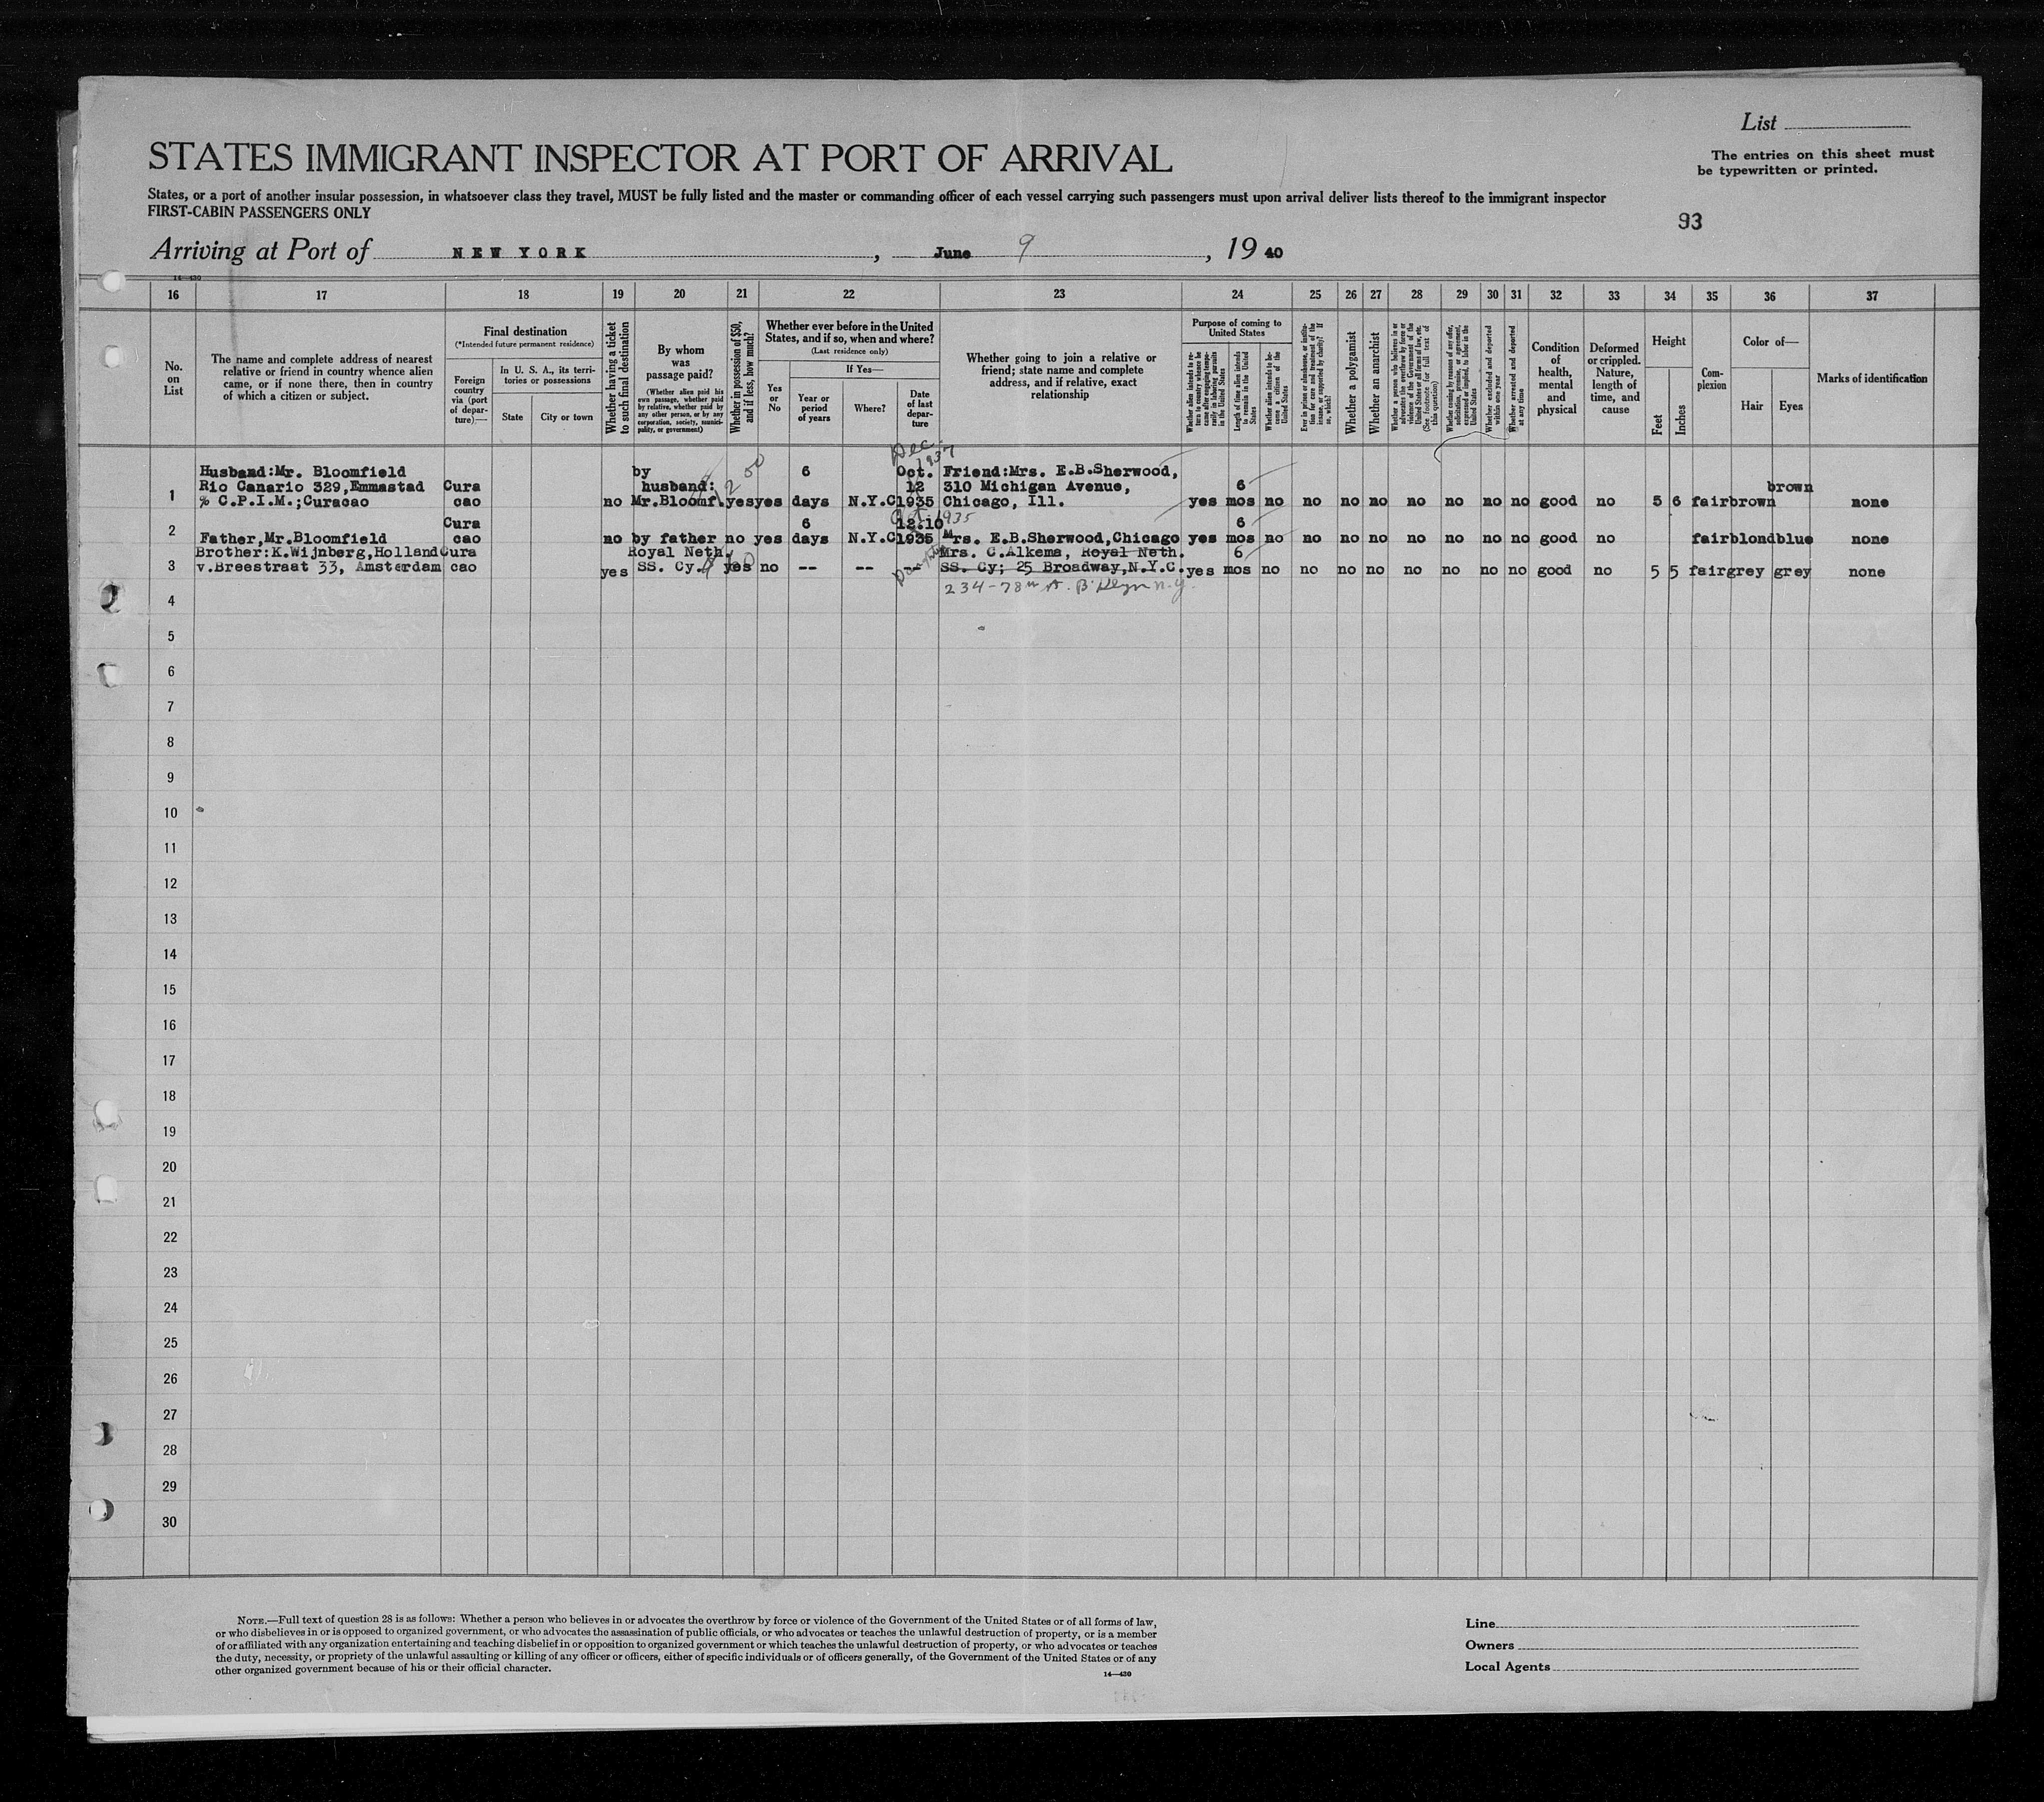 List
STATES IMMIGRANT INSPECTOR AT PORT OF ARRIVAL
The entries on this sheet must
be typewritten or printed.
States, or a port of another insular possession, in whatsoever class they travel, MUST be fully listed and the master or commanding officer of each vessel carrying such passengers must upon arrival deliver lists thereof to the immigrant inspector
FIRST-CABIN PASSENGERS ONLY
93
Arriving at Port of NEW YORK, June 9, 19 40
14—430
16 17 18 19 20 21 22 23 24 25 26 27 28 29 30 31 32 33 34 35 36 37
No. on List
The name and complete address of nearest
relative or friend in country whence alien
came, or if none there, then in country
of which a citizen or subject.
Final destination
(*Intended future permanent residence)
Foreign
country
via (port
of depar-
ture)—
In U. S. A., its terri-
tories or possessions
State
City or town
Whether having a ticket
to such final destination
By whom
was
passage paid?
(Whether alien paid his
own passage, whether paid
by relative, whether paid by
any other person, or by any
corporation, society, munici-
pality, or government)
Whether in possession of $50,
and if less, how much?
Whether ever before in the United
States, and if so, when and where?
(Last residence only)
Yes
or
No
If Yes—
Year or
period
of years
Where?
Date
of last
depar-
ture
Whether going to join a relative or
friend; state name and complete
address, and if relative, exact
relationship
Purpose of coming to
United States
Whether alien intends to re-
turn to country whence he
came after engaging tempo-
rarily in laboring pursuits
in the United States
Length of time alien intends
to remain in the United
States
Whether alien intends to be-
come a citizen of the
United States
Ever in prison or almshouse, or institu-
tion for care and treatment of the
insane, or supported by charity? If
so, which?
Whether a polygamist
Whether an anarchist
Whether a person who believes in or
advocates the overthrow by force or
violence of the Government of the
United States or all forms of law, etc.
(See footnote for full text of
this question)
Whether coming by reasons of any offer,
solicitation, promise, or agreement,
expressed or implied, to labor in the
United States
Whether excluded and deported
within one year
Whether arrested and deported
at any time
Condition
of
health,
mental
and
physical
Deformed
or crippled.
Nature,
length of
time, and
cause
Height
Feet
Inches
Com-
plexion
Color of—
Hair
Eyes
Marks of identification
Dec.
1937
Husband:Mr. Bloomfield by 6 Oct. Friend:Mrs. E.B.Sherwood,
Rio Canario 329,Emmastad Cura husband: 12 310 Michigan Avenue, 6 brown
1 % C.P.I.M.;Curacao cao no Mr.Bloomf. yes yes days N.Y.C 1935 Chicago, Ill. yes mos no no no no no no no no good no 5 6 fair brown none
250
Oct. 1935
Cura 6 12.10 6
2 Father,Mr.Bloomfield cao no by father no yes days N.Y.C 1935 Mrs. E.B.Sherwood,Chicago yes mos no no no no no no no no good no fair blond blue none
Brother:K.Wijnberg,Holland Cura Royal Neth. Mrs. C.Alkema, Royal Neth. 6
3 v.Breestraat 33, Amsterdam cao yes SS. Cy. yes no -- -- -- SS. Cy; 25 Broadway,N.Y.C. yes mos no no no no no no no no good no 5 5 fair grey grey none
234-78th St. B'klyn N.Y.
4
5
6
7
8
9
10
11
12
13
14
15
16
17
18
19
20
21
22
23
24
25
26
27
28
29
30
NOTE.—Full text of question 28 is as follows: Whether a person who believes in or advocates the overthrow by force or violence of the Government of the United States or of all forms of law,
or who disbelieves in or is opposed to organized government, or who advocates the assassination of public officials, or who advocates or teaches the unlawful destruction of property, or is a member
of or affiliated with any organization entertaining and teaching disbelief in or opposition to organized government or which teaches the unlawful destruction of property, or who advocates or teaches
the duty, necessity, or propriety of the unlawful assaulting or killing of any officer or officers, either of specific individuals or of officers generally, of the Government of the United States or of any
other organized government because of his or their official character.
14—430
Line
Owners
Local Agents